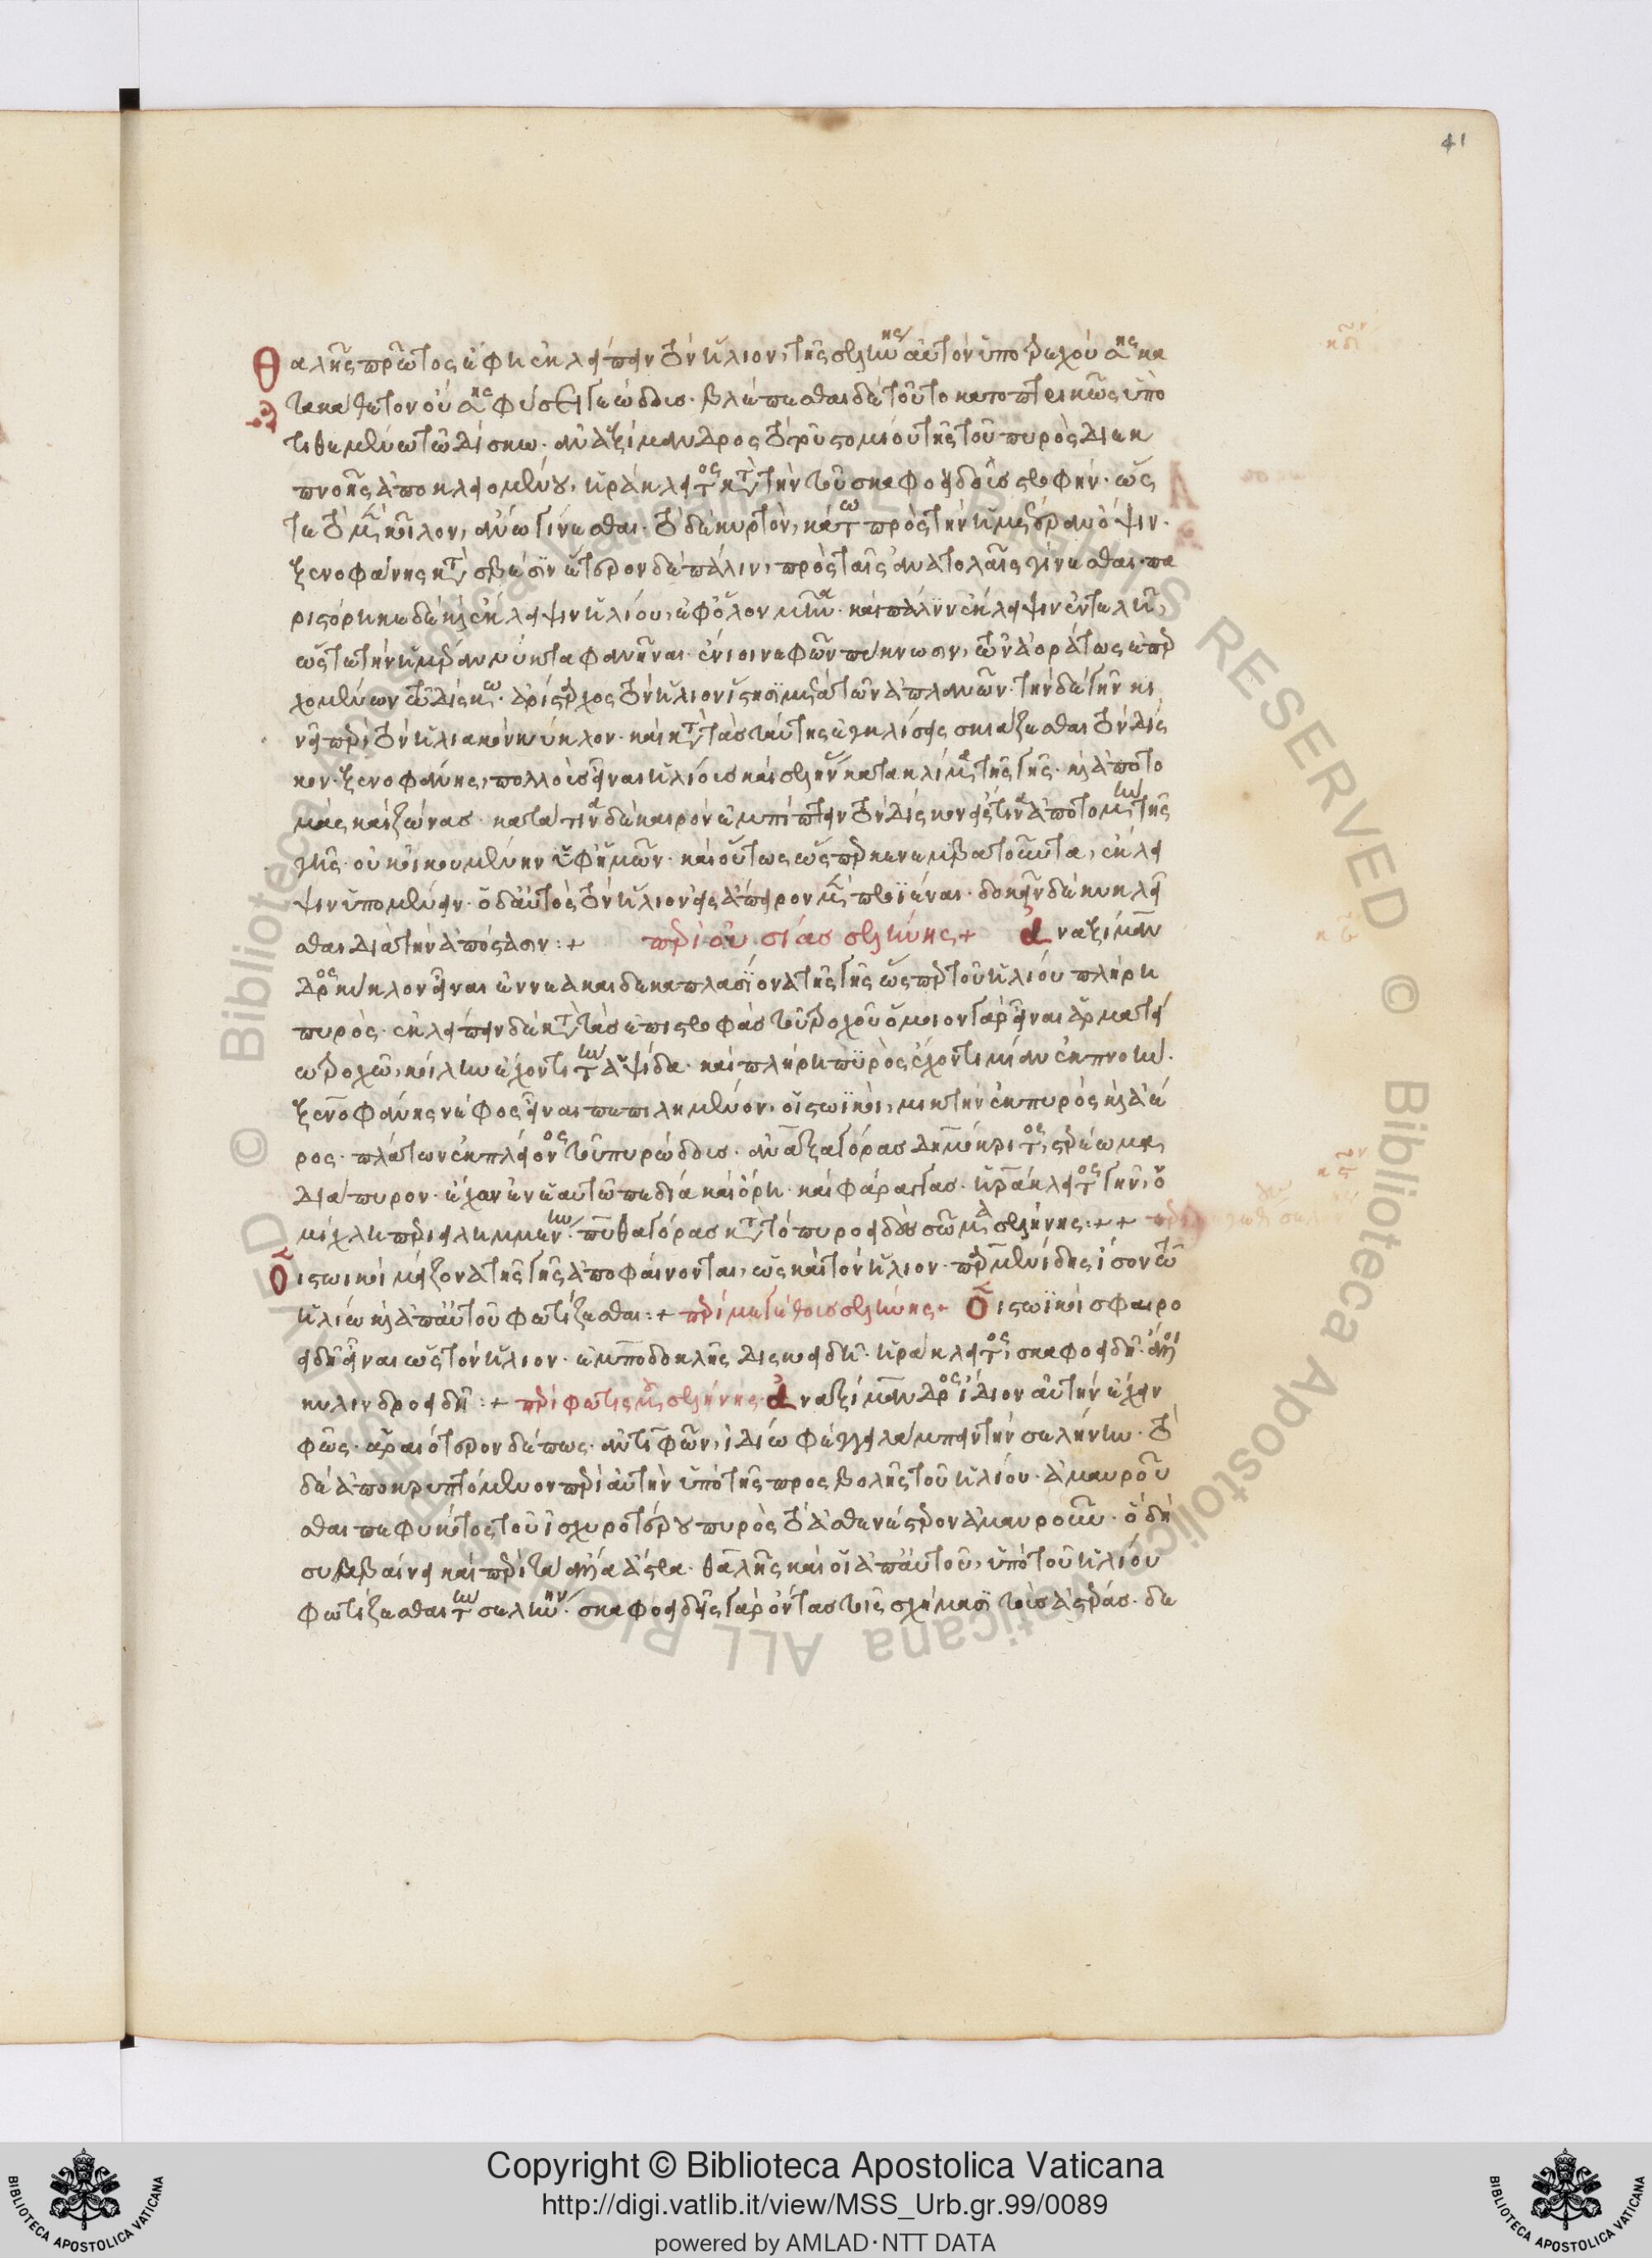 41
Θαλῆς πρῶτος ἔφη ἐκλείπειν τὸν ἥλιον, τῆς σελήνης αὐτὸν ὑποτρεχούσης κα
τὰ κάθετον οὔσης φύσει γεώδους. βλέπεσθαι δὲ τοῦτο κατοπτρικῶς ὑπο
τιθεμένω τῶ δίσκω. ἀναξίμανδρος τοῦ στομίου τῆς τοῦ πυρὸς διεκ
πνοῆς ἀποκλειομένου. ἡράκλειτος κατὰ τὴν τοῦ σκαφοειδοῦς στροφήν. ὥς
τε τὸ μὲν κοῖλον, ἄνω γίνεσθαι. τὸ δὲ κυρτὸν, κάτω πρὸς τὴν ἡμετέραν ὄψιν.
ξενοφάνης κατὰ σβέσιν ἕτερον δὲ πάλιν, πρὸς ταῖς ἀνατολαῖς γίνεσθαι. πα
ριστόρηκε δὲ καὶ ἔκλειψιν ἡλίου, ἐφ ὅλον μῆνα. καὶ πάλιν ἔκλειψιν ἐντελῆ,
ὥστε τὴν ἡμέραν νύκτα φανῆναι. ἔνιοι νεφῶν πύκνωσιν, τῶν ἀοράτως ἐπερ
χομένων τῶ δίσκω. ἀρίσταρχος τὸν ἥλιον ἵστησι μετὰ τῶν ἀπλανῶν. τὴν δὲ γῆν κι
νεῖ περὶ τὸν ἡλιακὸν κύκλον. καὶ κατὰ τὰς ταύτης ἐγκλίσεις σκιάζεσθαι τὸν δίσ
κον. ξενοφάνης, πολλοὺς εἶναι ἡλίους καὶ σελήνας κατὰ κλίματα τῆς γῆς. καὶ ἀποτο
μὰς καὶ ζώνας. κατά τινα δὲ καιρὸν ἐμπίπτειν τὸν δίσκον εἴς τινα ἀποτομὴν τῆς
γῆς. οὐκ οἰκουμένην ὑφ ἡμῶν. καὶ οὕτως ὥσπερ κενεμβατοῦντα, ἔκλει
ψιν ὑπομένειν. ὁ δ αὐτὸς τὸν ἥλιον εἰς ἄπειρον μὲν προϊέναι. δοκεῖν δὲ κυκλεῖ
σθαι διὰ τὴν ἀπόστασιν :+ περὶ οὐσίας σελήνης + Ἀναξίμαν
δρος κύκλον εἶναι ἐννεακαιδεκαπλασίονα τῆς γῆς ὥσπερ τοῦ ἡλίου πλήρη
πυρός. ἐκλείπειν δὲ κατὰ τὰς ἐπιστροφὰς τοῦ τροχοῦ ὅμοιον γὰρ εἶναι ἁρματεί
ω τροχῶ, κοίλην ἔχοντι τὴν ἁψίδα. καὶ πλήρη πυρὸς ἔχοντι μίαν ἐκπνοήν.
ξενοφάνης νέφος εἶναι πεπιλημένον. οἱ στωϊκοὶ, μικτὴν ἐκ πυρὸς καὶ ἀέ
ρος. πλάτων ἐκ πλείονος τοῦ πυρώδους. ἀναξαγόρας δημόκριτος, στερέωμα
διάπυρον. ἔχον ἐν ἑαυτῶ πεδία καὶ ὄρη. καὶ φάραγγας. ἡράκλειτος γῆν, ὁ
μίχλη περιειλημμένην. πυθαγόρας κατὰ τὸ πυροειδὲς σῶμα σελήνης :++
Οἱ στωικοὶ μείζονα τῆς γῆς ἀποφαίνονται, ὡς καὶ τὸν ἥλιον. παρμενίδης ἴσον τῶ
ἡλίω καὶ ἀπ αὐτοῦ φωτίζεσθαι :+ περὶ μεγέθους σελήνης + Οἱ στωϊκοὶ σφαιρο
ειδῆ εἶναι ὡς τὸν ἥλιον. ἐμπεδοκλῆς δισκοειδῆ. ἡράκλειτος, σκαφοειδῆ. ἄλλοι
κυλινδροειδῆ :+ περὶ φωτισμῶν σελήνης. Ἀναξίμανδρος ἴδιον αὐτὴν ἔχειν
φῶς. ἀραιότερον δέ πως. ἀντιφῶν, ἰδίω φέγγει λάμπειν τὴν σελήνην. τὸ
δὲ ἀποκρυπτόμενον περὶ αὐτὴν ὑπὸ τῆς προσβολῆς τοῦ ἡλίου. ἀμαυροῦ
σθαι πεφυκότος τοῦ ἰσχυροτέρου πυρὸς τὸ ἀσθενέστερον ἀμαυροῦν. ὃ δὴ
συμβαίνει καὶ περὶ τὰ ἄλλα ἄστρα. θαλῆς καὶ οἱ ἀπ αὐτοῦ, ὑπὸ τοῦ ἡλίου
φωτίζεσθαι τὴν σελήνην. σκαφοειδεῖς γὰρ ὄντας τοῖς σχήμασι τοὺς ἀστέρας. δε
Copyright © Biblioteca Apostolica Vaticana
http://digi.vatlib.it/view/MSS_Urb.gr.99/0089
powered by AMLAD·NTT DATA
BIBLIOTECA APOSTOLICA VATICANA
BIBLIOTECA APOSTOLICA VATICANA